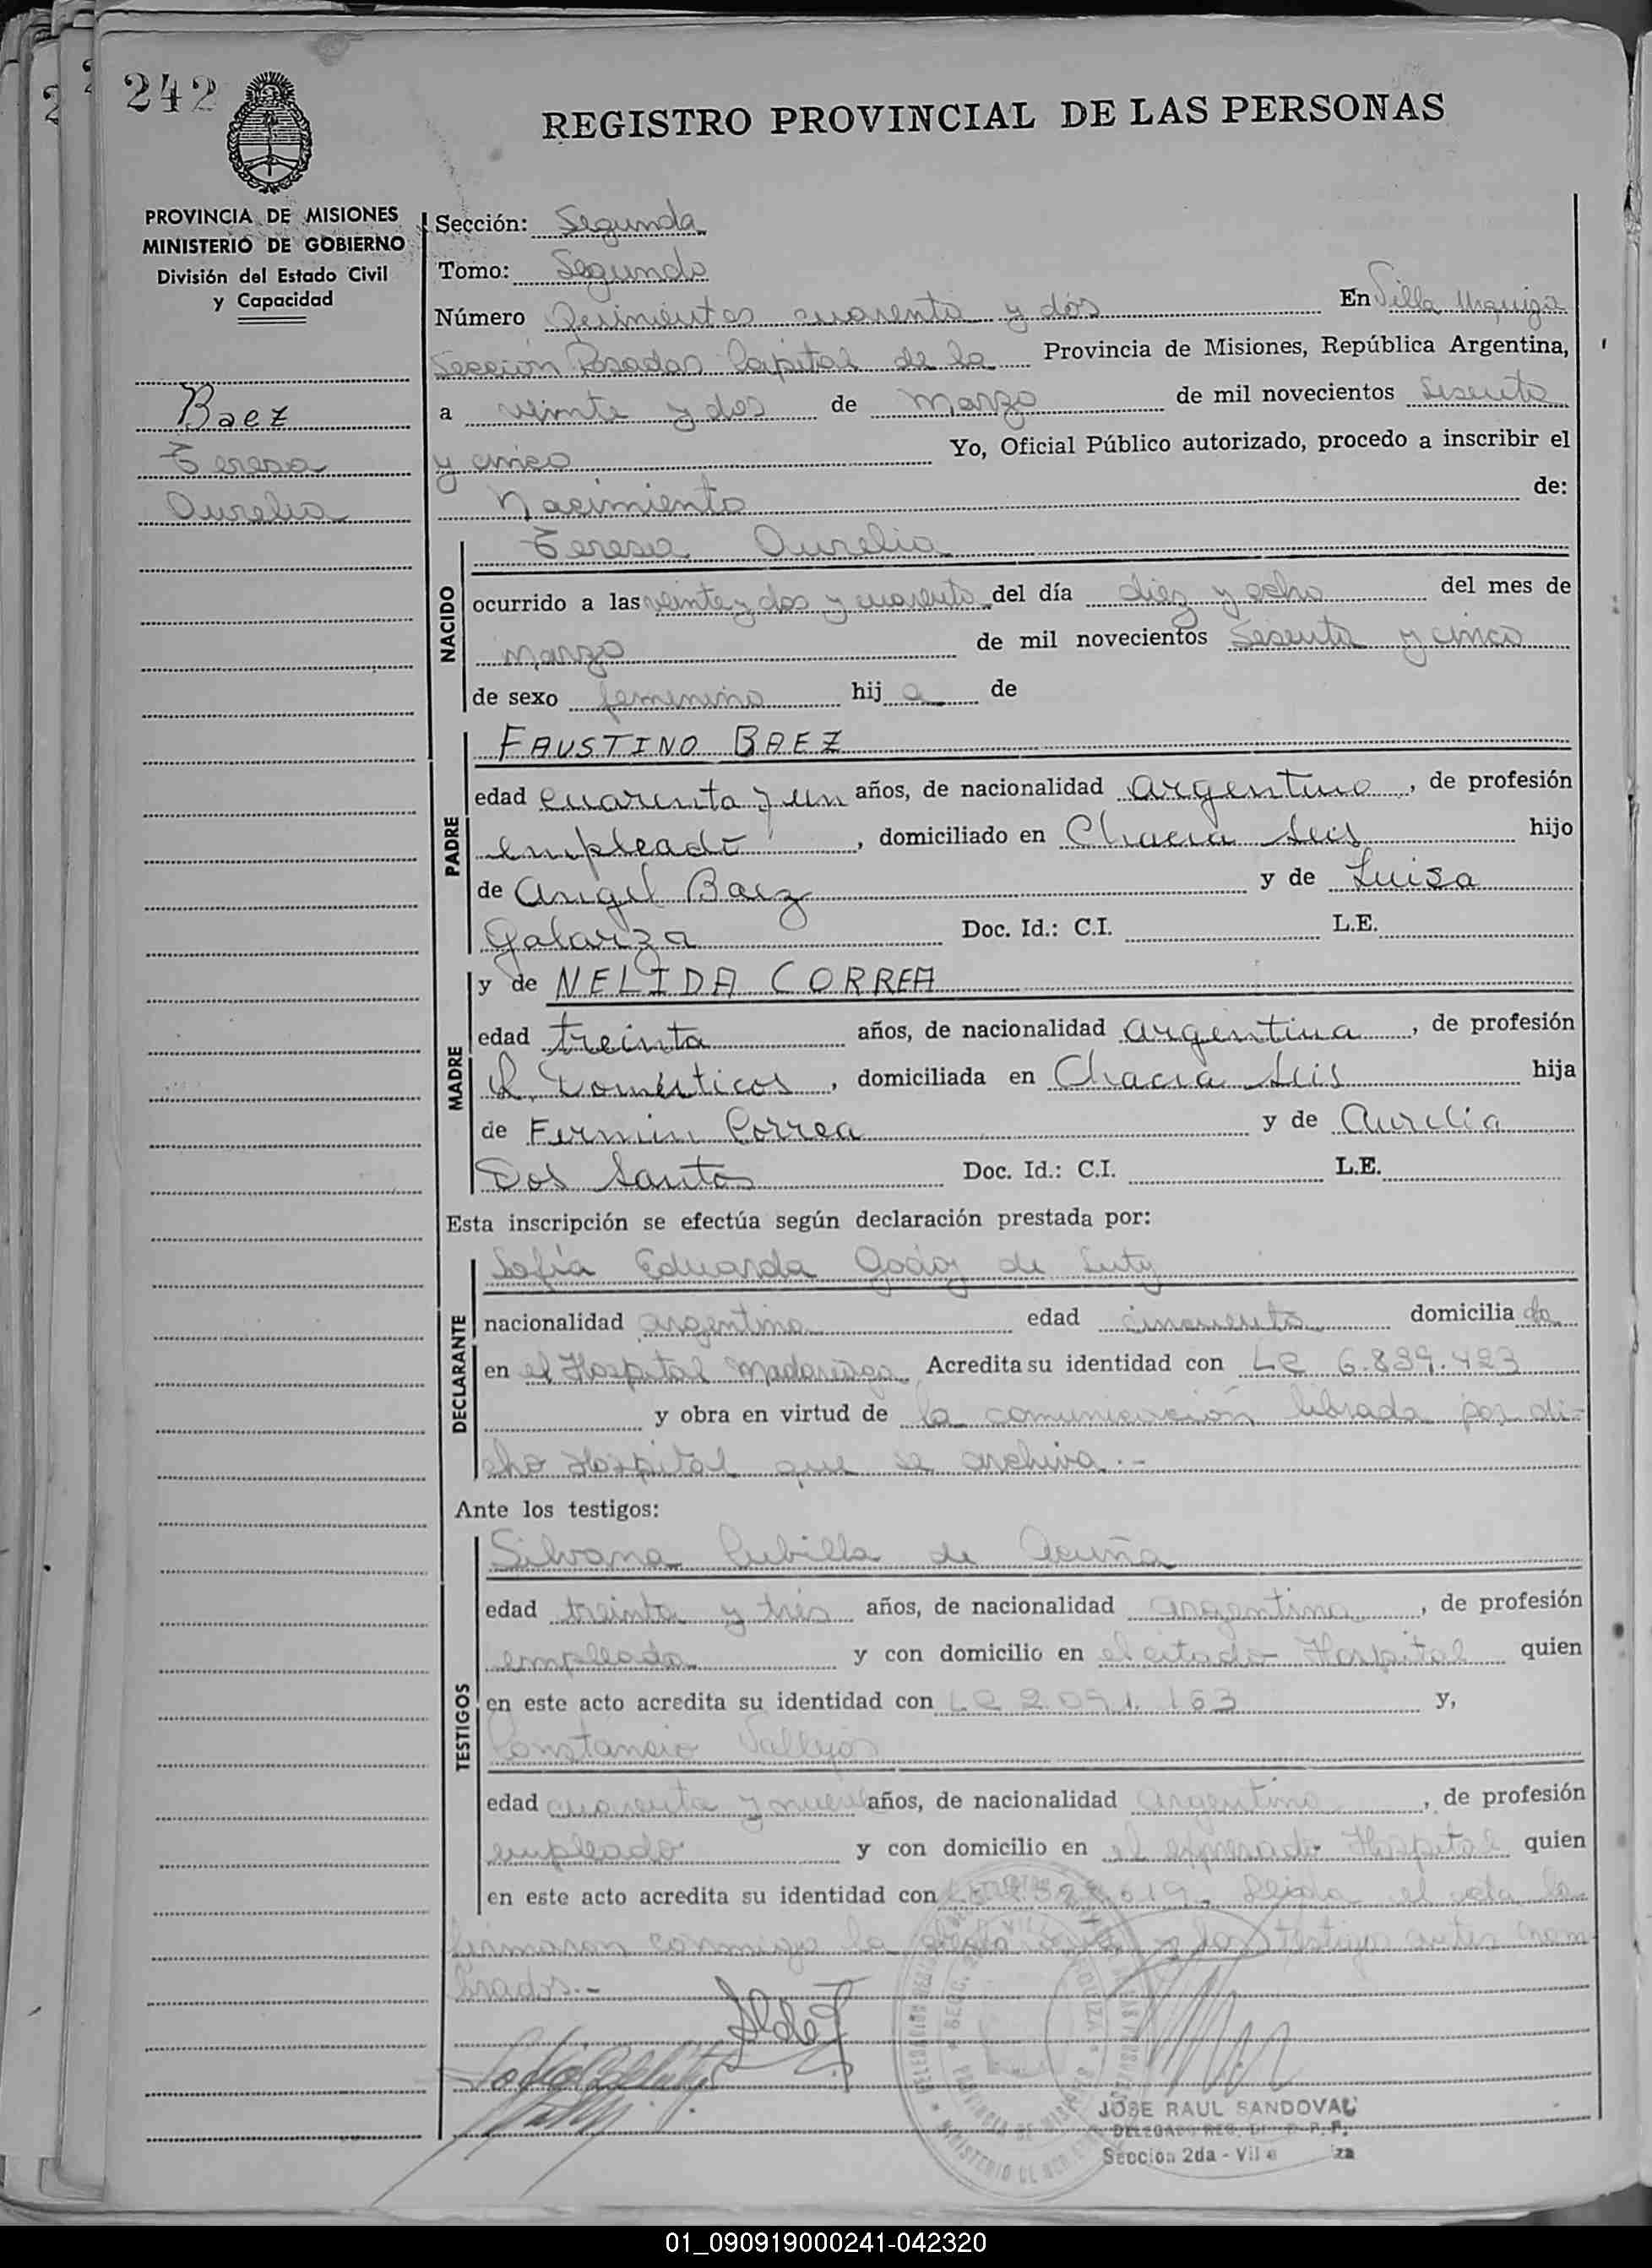 242
REGISTRO PROVINCIAL DE LAS PERSONAS
PROVINCIA DE MISIONES
MINISTERIO DE GOBIERNO
División del Estado Civil
y Capacidad
Baez
Teresa
Aurelia
Sección: Segunda
Tomo: Segundo
Número Quinientos cuarenta y dós En Villa Urquiza
Sección Posadas Capital de la Provincia de Misiones, República Argentina,
a veinte y dos de Marzo de mil novecientos sesenta
y cinco Yo, Oficial Público autorizado, procedo a inscribir el
Nacimiento de:
NACIDO
Teresa Aurelia
ocurrido a las veinte y dos y cuarenta del día diez y ocho del mes de
marzo de mil novecientos sesenta y cinco
de sexo femenino hij a de
PADRE
FAUSTINO BAEZ
edad cuarenta y un años, de nacionalidad argentino, de profesión
empleado, domiciliado en Chacra Seis hijo
de Angel Baez y de Luisa
Galarza Doc. Id.: C.I. L.E.
MADRE
y de NELIDA CORREA
edad treinta años, de nacionalidad argentina, de profesión
Q. Domésticos, domiciliada en Chacra Seis hija
de Fermin Correa y de Aurelia
Dos Santos Doc. Id.: C.I. L.E.
Esta inscripción se efectúa según declaración prestada por:
DECLARANTE
Sofía Eduarda Godoy de Luty
nacionalidad argentina edad cincuenta domicilia da
en el Hospital Madariaga Acredita su identidad con LC 6.839.423
y obra en virtud de la comunicación librada por di-
cho Hospital que se archiva.-
Ante los testigos:
TESTIGOS
Silvana Cubilla de Acuña
edad treinta y trés años, de nacionalidad argentina, de profesión
empleada y con domicilio en el citado Hospital quien
en este acto acredita su identidad con LC 2.051.163 y,
Constancio Vallejos
edad cuarenta y nueve años, de nacionalidad argentino, de profesión
empleado y con domicilio en el expresado Hospital quien
en este acto acredita su identidad con Leida el acta la
firmaron conmigo la y los testigos antes nom-
brados.-
JOSE RAUL SANDOVAL
Sección 2da - Vil
01_090919000241-042320